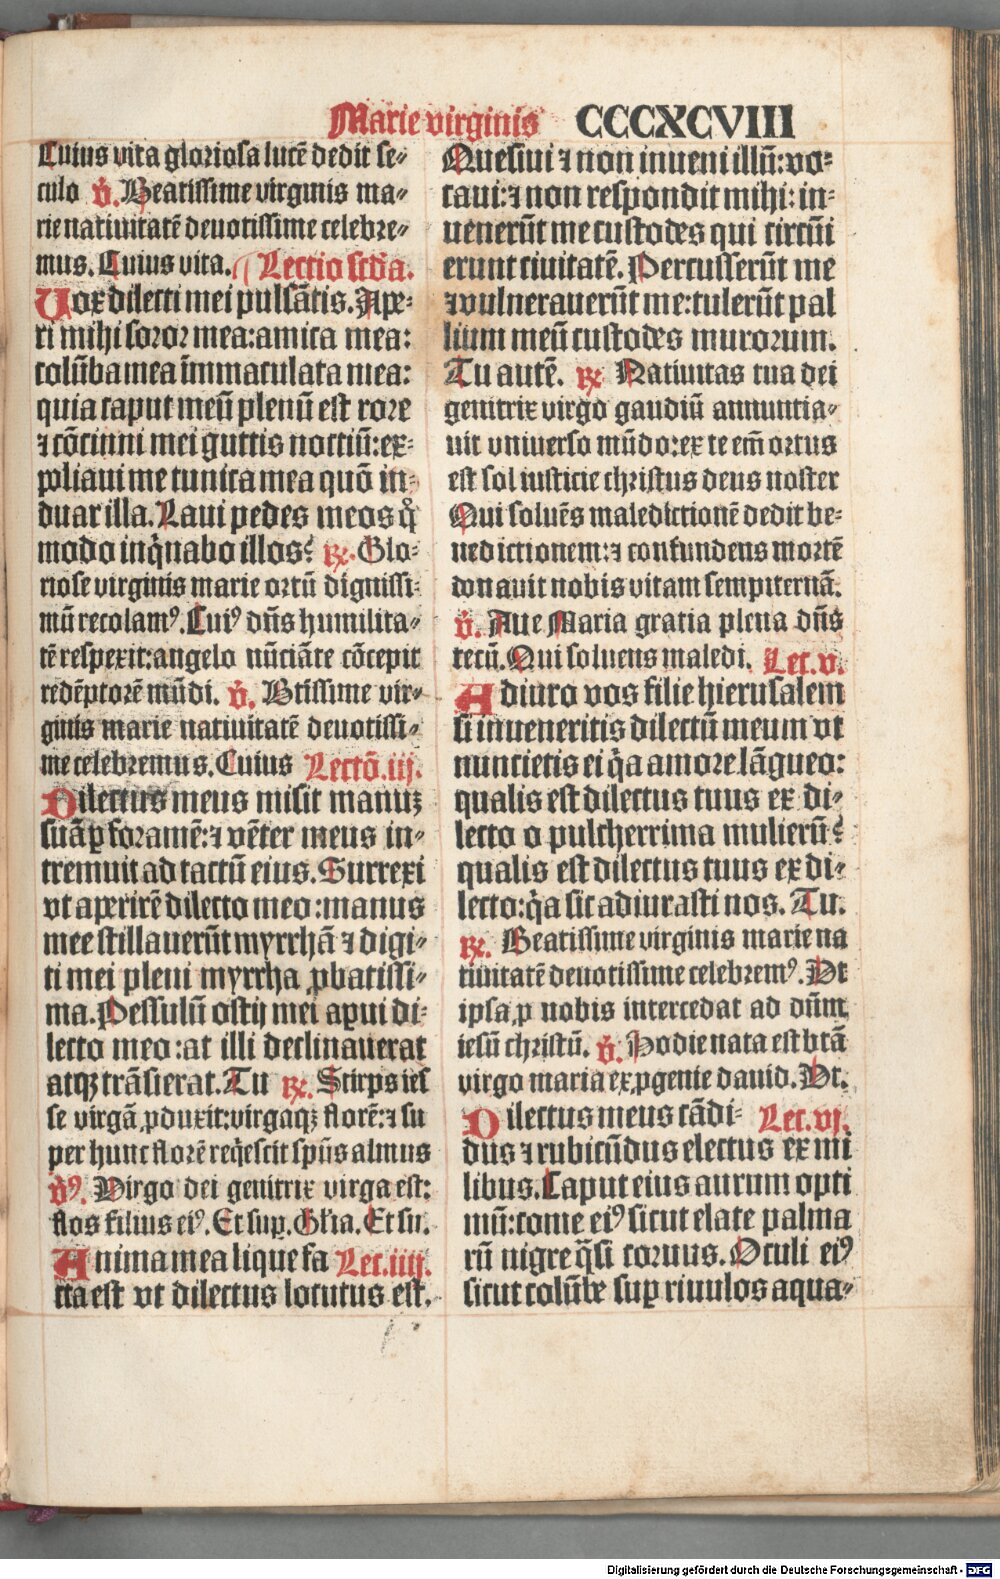 Marie virginis CCCXCVIII
Cuius vita gloriosa lucē dedit se⸗
culo v̄. Beatissime virginis ma⸗
rie natiuitatē deuotissime celebre⸗
mus. Cuius vita. Lectio scd̄a.
Uox dilecti mei pulsātis. Ape⸗
ri mihi soror mea:amica mea:
colūba mea īmmaculata mea:
quia caput meū plenū est rore
⁊ cōcinni mei guttis noctiū:ex⸗
poliaui me tunica mea quō in⸗
duar illa. Laui pedes meos qͦ
modo inqͥnabo illos? ꝶ. Glo⸗
riose virginis marie ortū dignissi⸗
mū recolamꝰ. Cuiꝰ dn̄s humilita⸗
tē respexit:angelo nūciāte cōcepit
redēptorē mūdi. v̄. Btissime vir⸗
ginis marie natiuitatē deuotissi⸗
me celebremus. Cuius Lectō.iij.
Dilectus meus misit manuꝫ
suā ꝑ foramē:⁊ vēter meus in⸗
tremuit ad tactū eius. Surrexi
vt aperirē dilecto meo:manus
mee stillauerūt myrrhā ⁊ digi⸗
ti mei pleni myrrha ꝓbatissi⸗
ma. Pessulū ostij mei aꝑui di⸗
lecto meo:at illi declinauerat
atqꝫ trāsierat. Tu ꝶ. Stirps ies
se virgā ꝓduxit:virgaqꝫ florē:⁊ su
per hunc florē reqͥescit spūs almus
v̄ꝰ. Virgo dei genitrix virga est:
flos filius eiꝰ. Et suꝑ. Glīa. Et su.
Anima mea liquefa Lec.iiij.
cta est vt dilectus locutus est.
Quesiui ⁊ non inueni illū:vo⸗
caui:⁊ non respondit mihi:in⸗
uenerūt me custodes qui circūi
erunt ciuitatē. Percusserūt me
⁊ vulnerauerūt me:tulerūt pal
lium meū custodes murorum.
Tu autē. ꝶ Natiuitas tua dei
genitrix virgo gaudiū annuntia⸗
uit vniuerso mūdo:ex te em̄ ortus
est sol iusticie christus deus noster
Qui soluēs maledictionē dedit be⸗
nedictionem:⁊ confundens mortē
donauit nobis vitam sempiternā.
v̄. Aue Maria gratia plena dn̄s
tecū. Qui soluens maledi. Lec.v.
Adiuro vos filie hierusalem
si inueneritis dilectū meum vt
nuncietis ei qͥa amore lāgueo:
qualis est dilectus tuus ex di⸗
lecto o pulcherrima mulierū?
qualis est dilectus tuus ex di⸗
lecto:qͥa sic adiurasti nos. Tu.
ꝶ. Beatissime virginis marie na
tiuitatē deuotissime celebremꝰ. Vt
ipsa ꝓ nobis intercedat ad dn̄m
iesū christū. v̄. Hodie nata est btā
virgo maria ex ꝓgenie dauid. Vt.
Dilectus meus cādi⸗ Lec.vj.
dus ⁊ rubicūdus electus ex mi
libus. Caput eius aurum opti
mū:come eiꝰ sicut elate palma
rū nigre qͣsi coruus. Oculi eiꝰ
sicut colūbe suꝑ riuulos aqua⸗
Digitalisierung gefördert durch die Deutsche Forschungsgemeinschaft - DFG